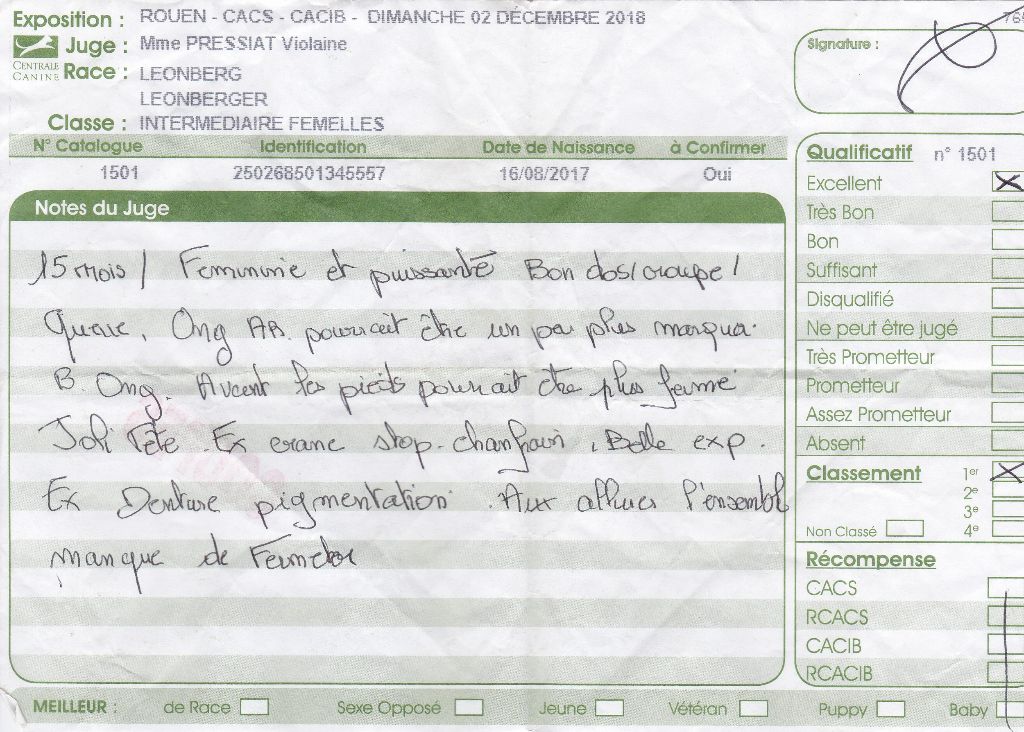 Exposition : ROUEN - CACS - CACIB - DIMANCHE 02 DÉCEMBRE 2018
Juge : Mme PRESSIAT Violaine
CENTRALE CANINE
Race : LEONBERG
LEONBERGER
Classe : INTERMEDIAIRE FEMELLES
N° Catalogue Identification Date de Naissance à Confirmer
1501 250268501345557 16/08/2017 Oui
Notes du Juge
15 mois / Feminine et puissante Bon dos/croupe /
Queue. Ong AR. pourrait être un peu plus marqua.
B. Ong. Avant les pieds pourrait être plus ferme
Joli Tête. Ex crane stop-chanfrain, Belle exp.
Ex Denture pigmentation. Aux allures l'ensembl
manque de
Signature :
Qualificatif n° 1501
Excellent X
Très Bon
Bon
Suffisant
Disqualifié
Ne peut être jugé
Très Prometteur
Prometteur
Assez Prometteur
Absent
Classement 1er X
2e
3e
Non Classé 4e
Récompense
CACS
RCACS
CACIB
RCACIB
MEILLEUR : de Race Sexe Opposé Jeune Vétéran Puppy Baby